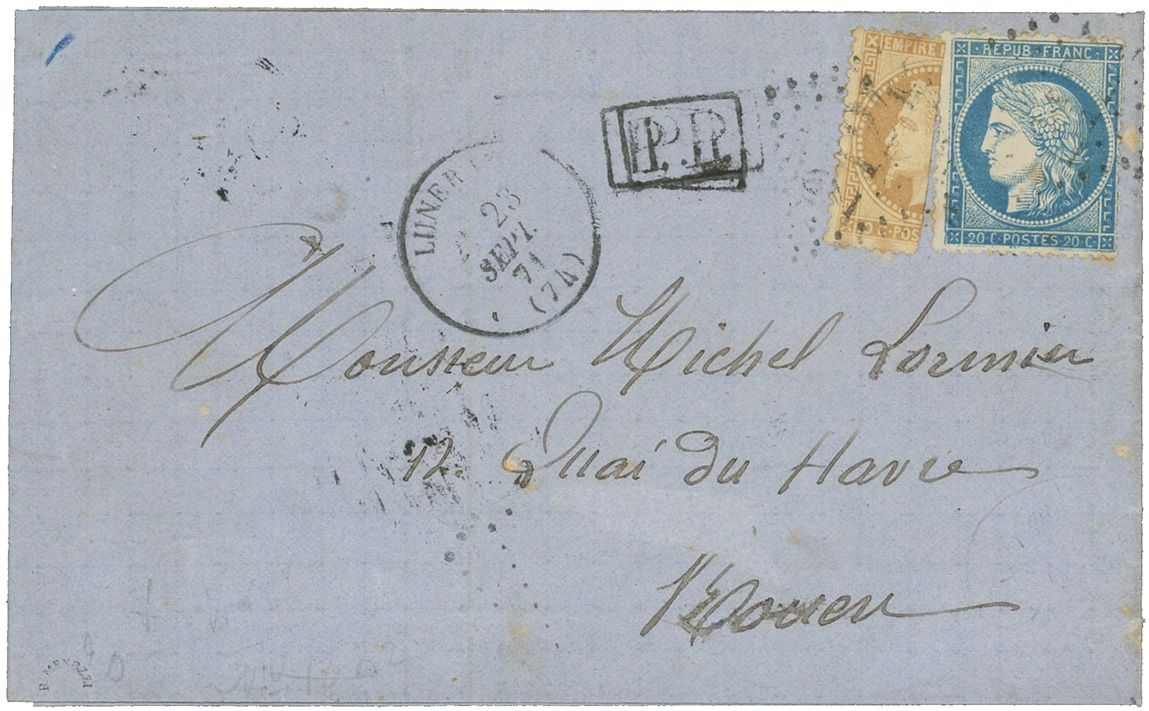 EMPIRE
RÉPUB. FRANC.
P.P.
LUNER
23
SEPT.
71
(74)
20 C. POSTES 20 C.
Monsieur Michel Lormier
12 Quai du Havre
Rouen